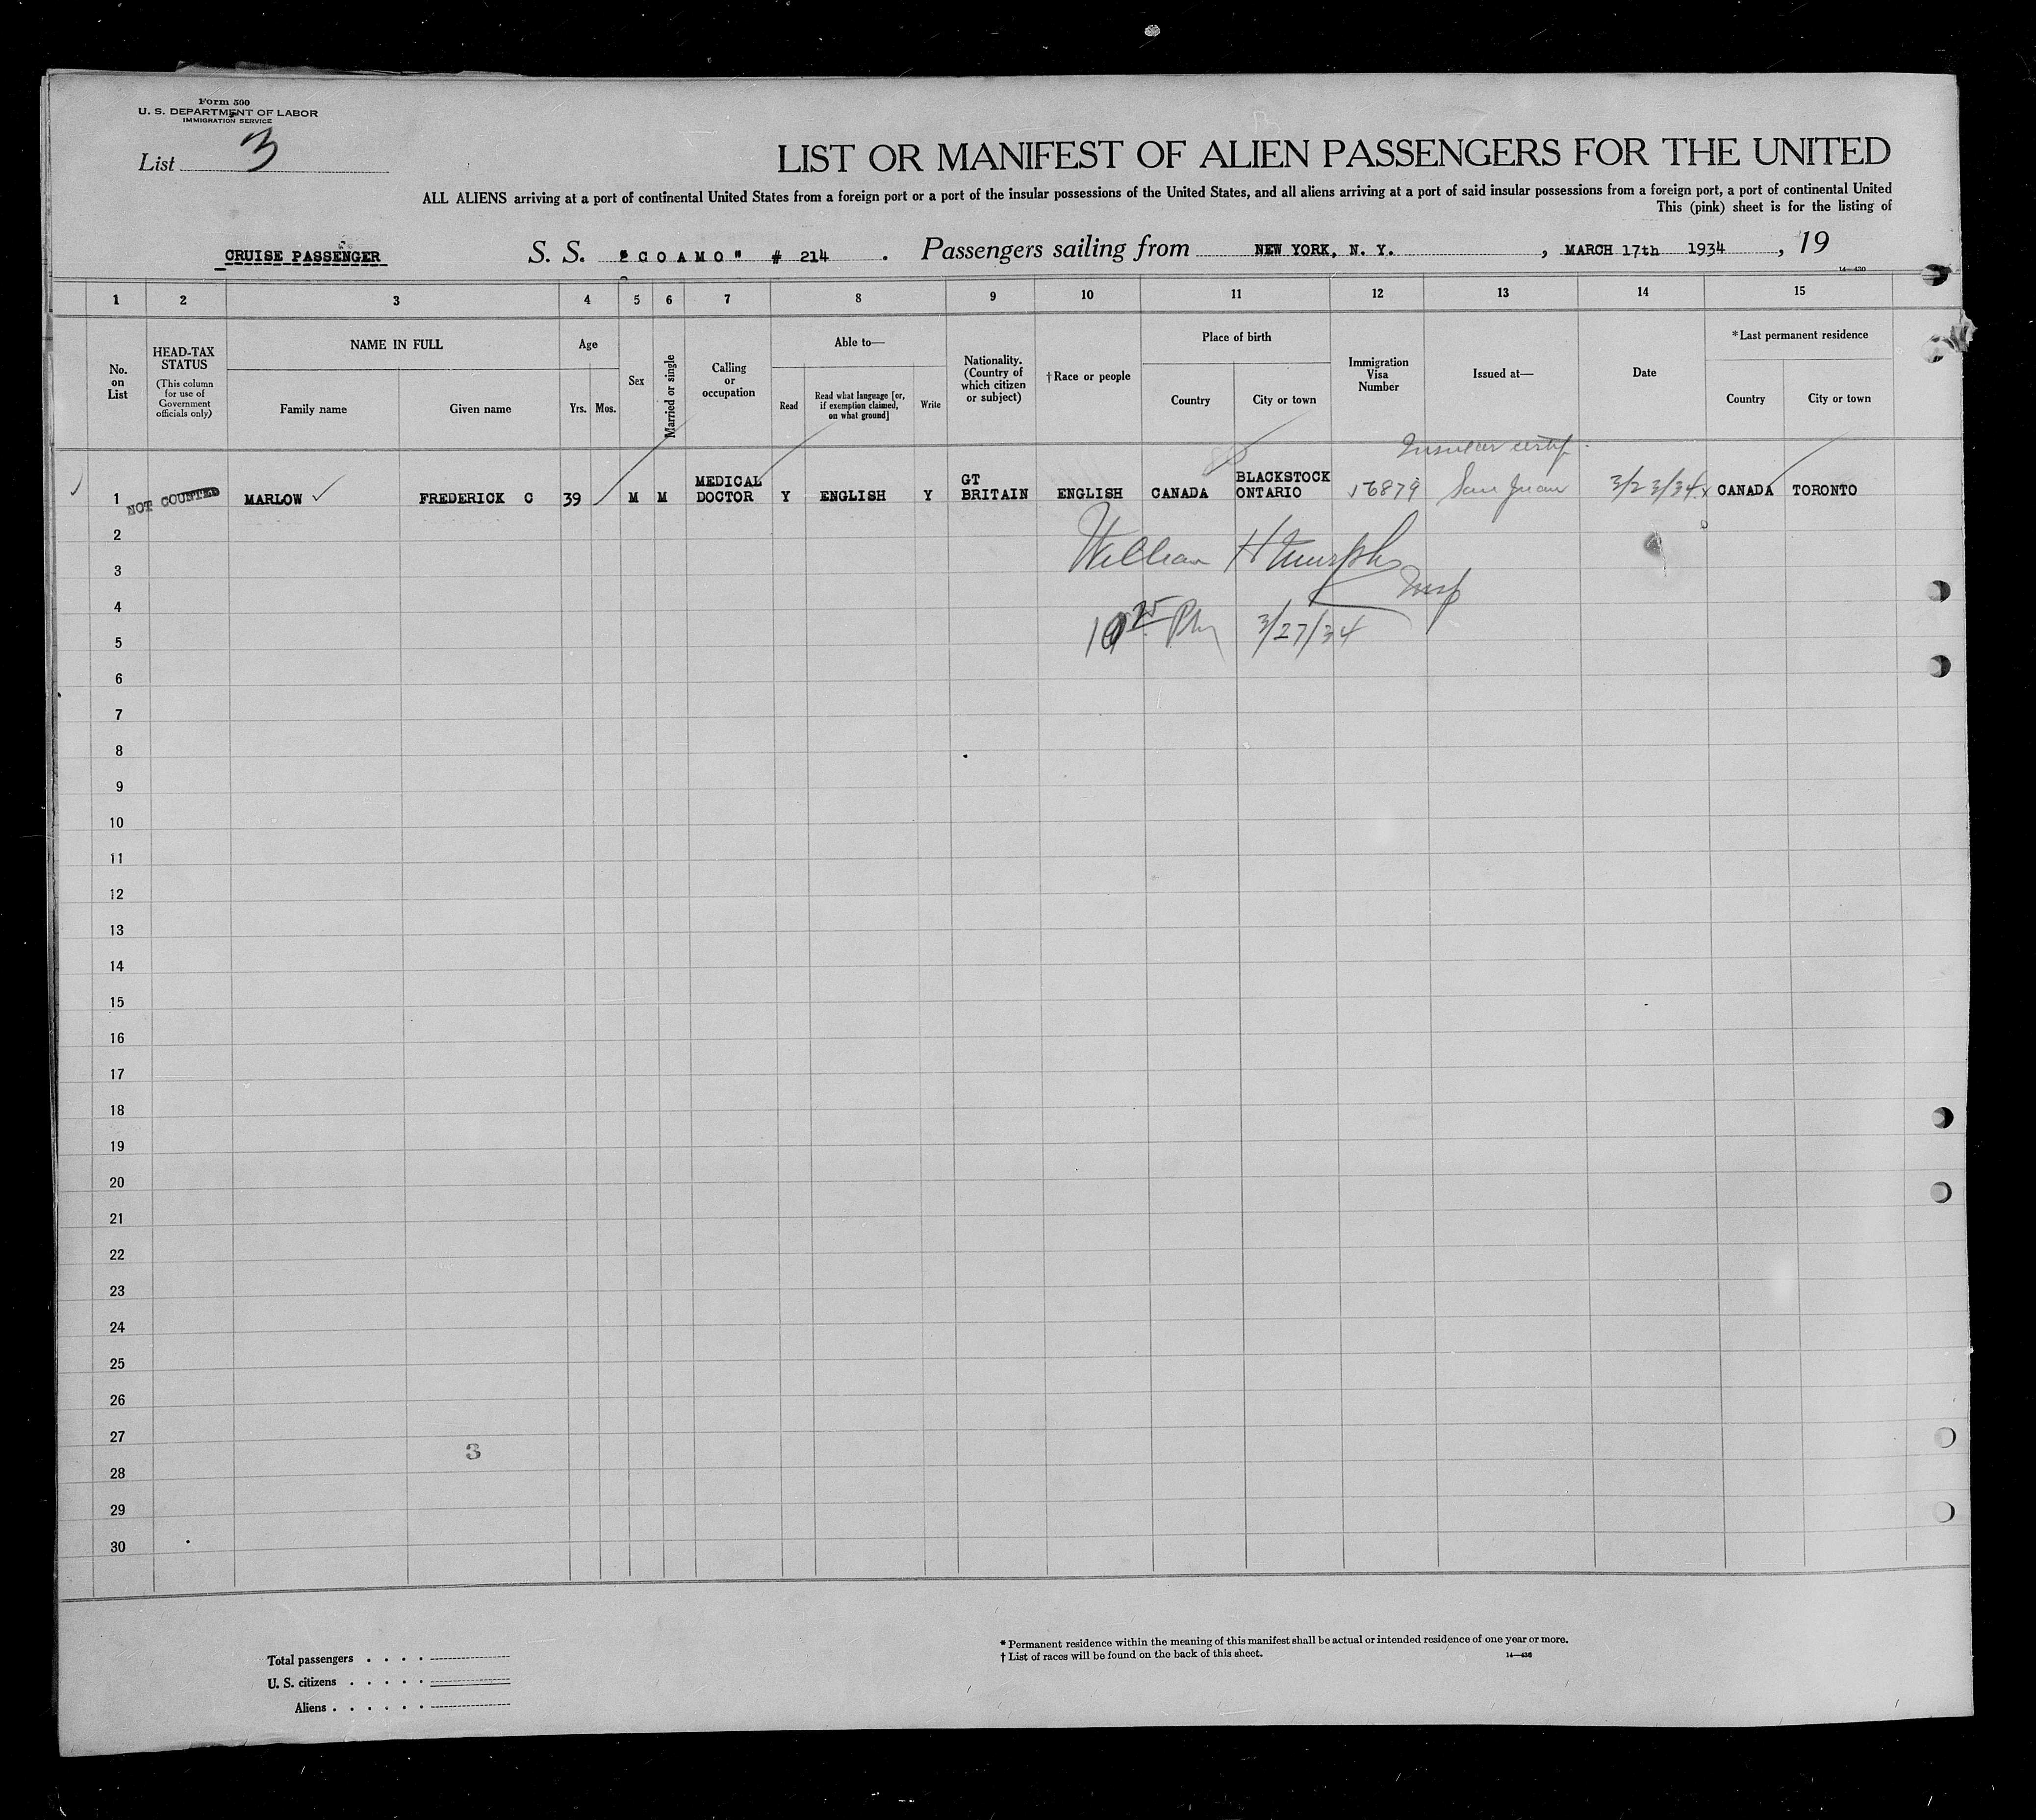 Form 500
U. S. DEPARTMENT OF LABOR
IMMIGRATION SERVICE
List 3
LIST OR MANIFEST OF ALIEN PASSENGERS FOR THE UNITED
ALL ALIENS arriving at a port of continental United States from a foreign port or a port of the insular possessions of the United States, and all aliens arriving at a port of said insular possessions from a foreign port, a port of continental United
This (pink) sheet is for the listing of
CRUISE PASSENGER S. S. "COAMO" # 214 . Passengers sailing from NEW YORK, N. Y. , MARCH 17th 1934 , 19
14—430
1 2 3 4 5 6 7 8 9 10 11 12 13 14 15
No. on List
HEAD-TAX STATUS
(This column for use of Government officials only)
NAME IN FULL
Family name
Given name
Age
Yrs. Mos.
Sex
Married or single
Calling or occupation
Able to—
Read
Read what language [or, if exemption claimed, on what ground]
Write
Nationality. (Country of which citizen or subject)
†Race or people
Place of birth
Country
City or town
Immigration Visa Number
Issued at—
Date
*Last permanent residence
Country
City or town
Insular certif.
1 NOT COUNTED MARLOW FREDERICK C 39 M M MEDICAL DOCTOR Y ENGLISH Y GT BRITAIN ENGLISH CANADA BLACKSTOCK ONTARIO 16879 San Juan 3/23/34 CANADA TORONTO
2
William H Murphy
3
Insp
4
10 25 PM 3/27/34
5
6
7
8
9
10
11
12
13
14
15
16
17
18
19
20
21
22
23
24
25
26
27
3
28
29
30
* Permanent residence within the meaning of this manifest shall be actual or intended residence of one year or more.
† List of races will be found on the back of this sheet.
14—430
Total passengers . . . .
U. S. citizens . . . . .
Aliens . . . . . .